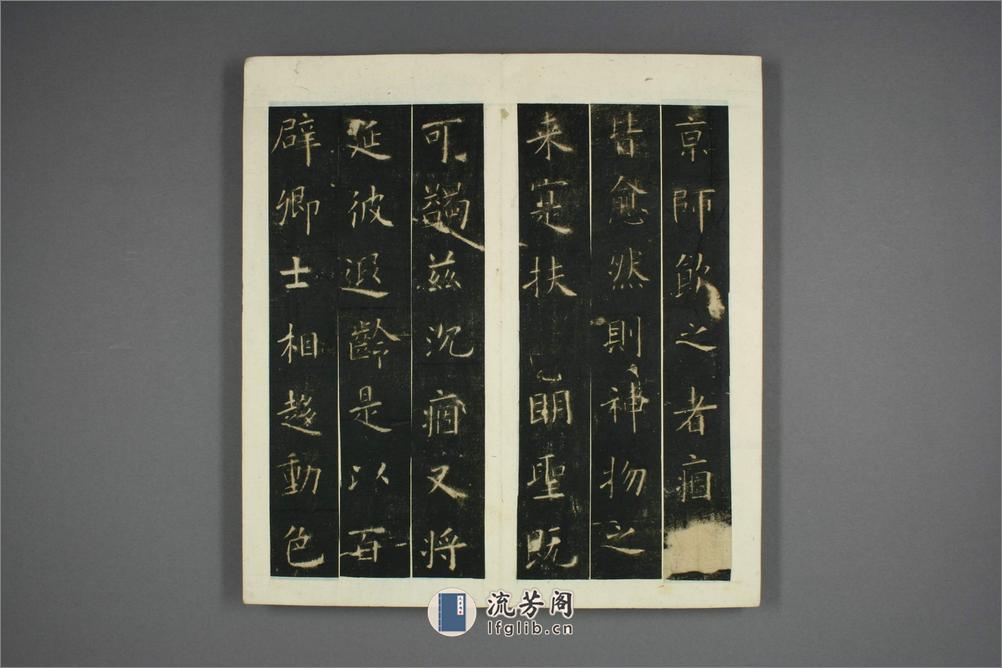 京師飲之者痼
皆愈然則神物之
来寔扶明聖既
可蠲兹沉痼又将
延彼遐齡是以百
辟卿士相趍動色
流芳阁
lfglib.cn